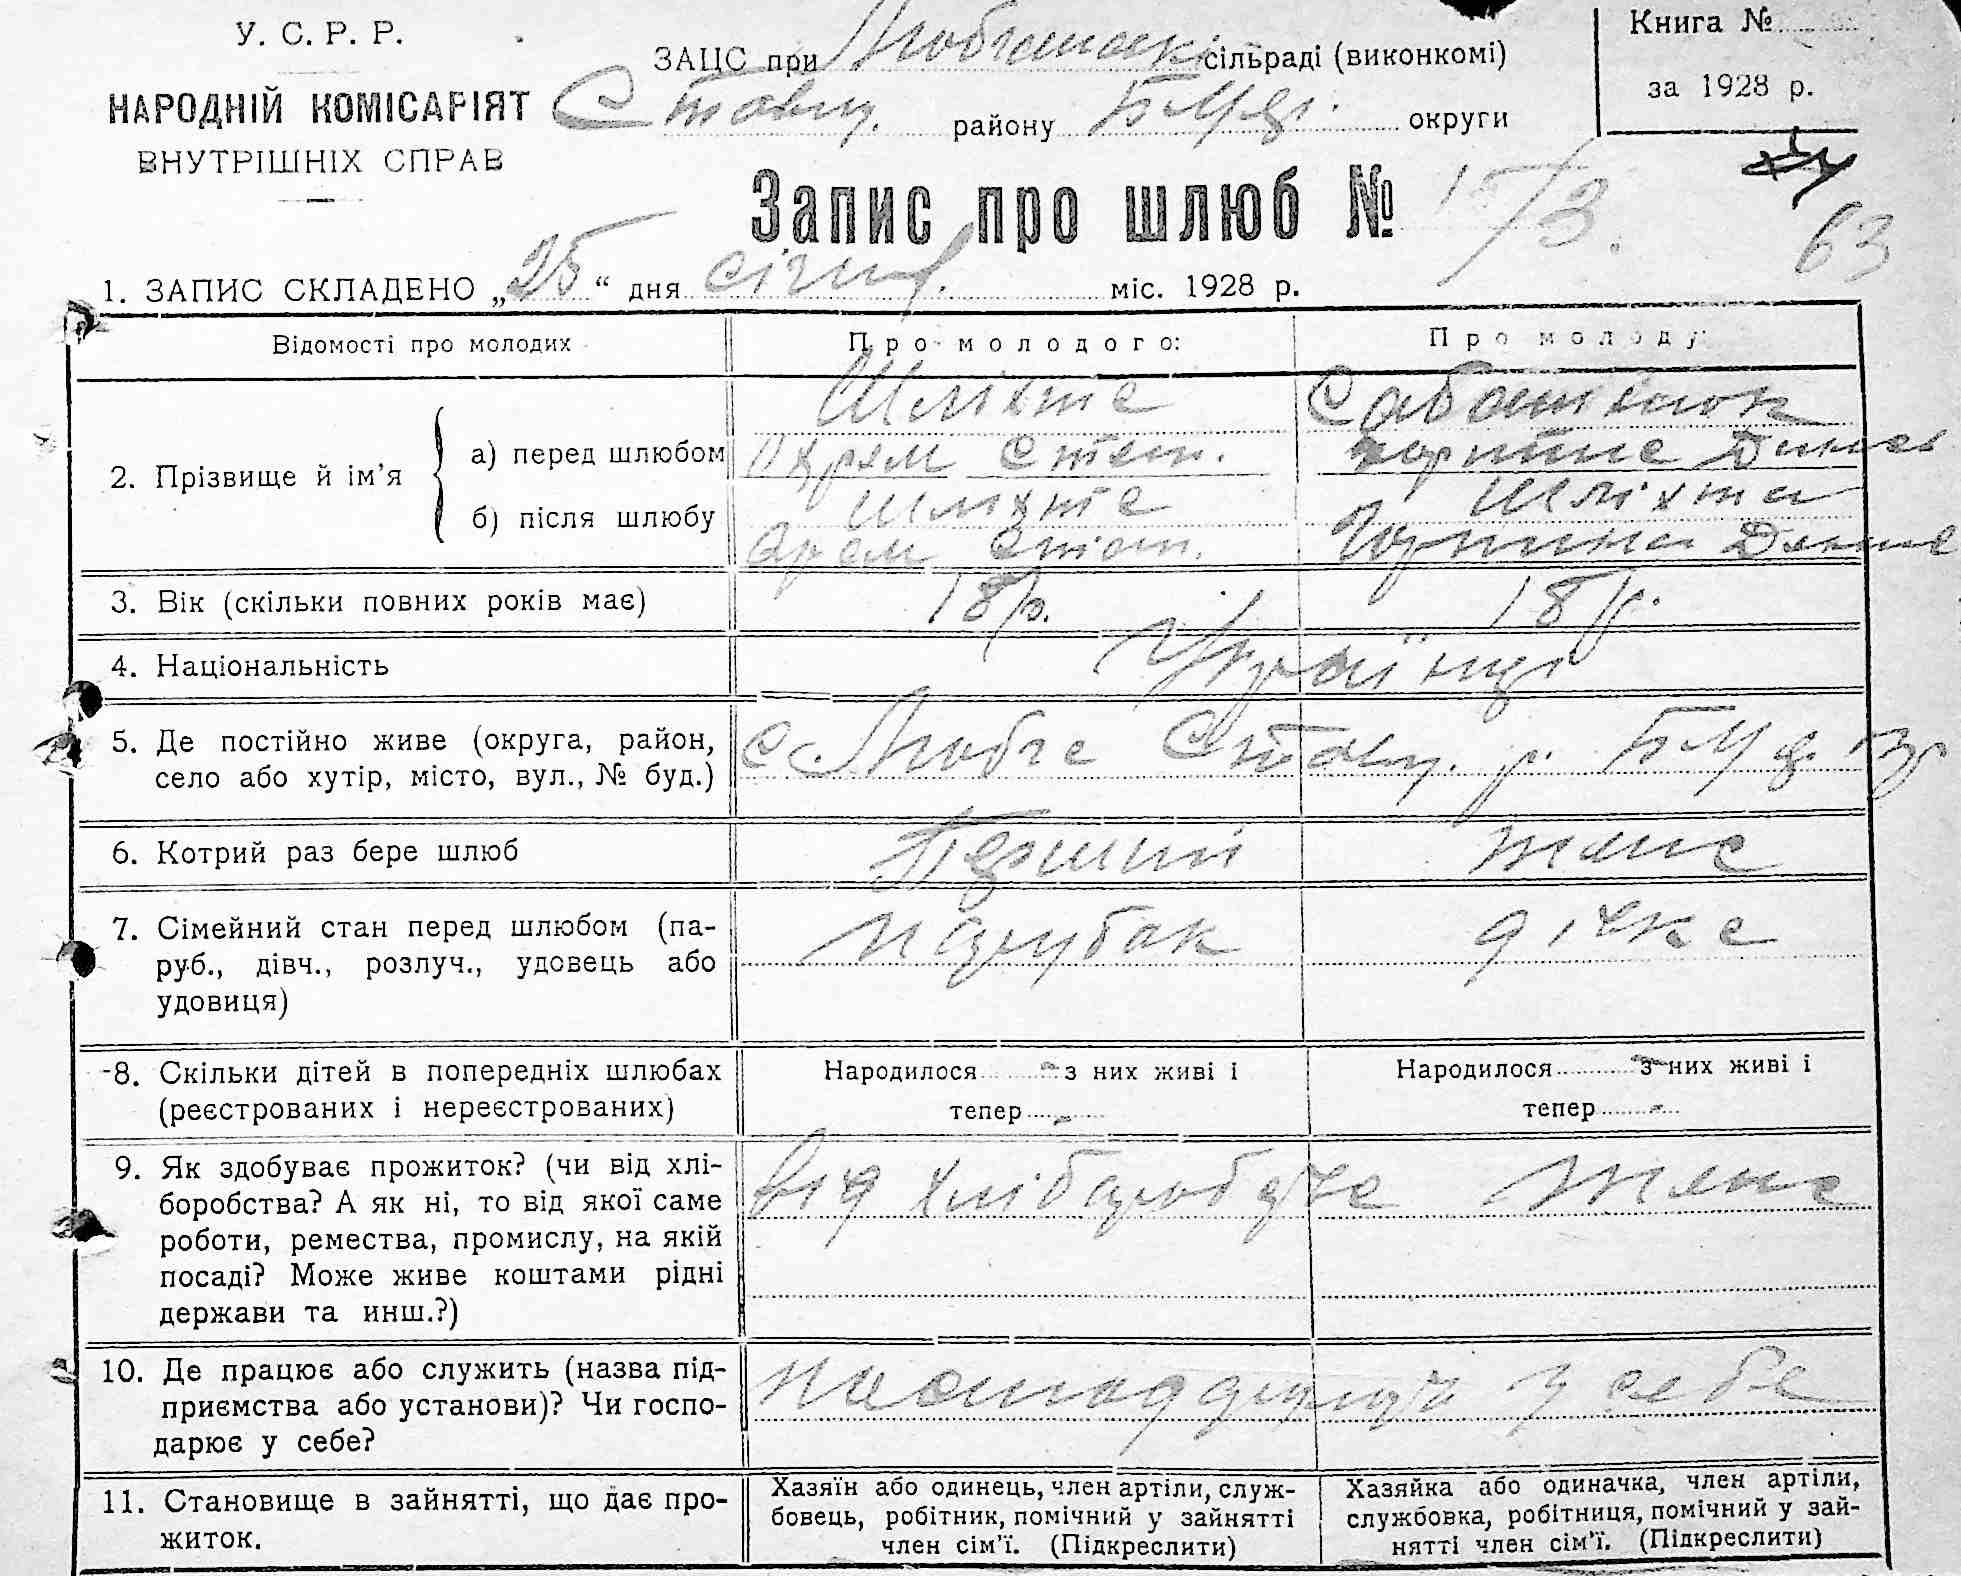 У. С. Р. Р.
НАРОДНІЙ КОМІСАРІЯТ
ВНУТРІШНІХ СПРАВ
ЗАЦС при сільраді (виконкомі)
Ставищ. району БЦ округи
Книга №
за 1928 р.
63
Запис про шлюб № 173.
1. ЗАПИС СКЛАДЕНО „25“ дня січня міс. 1928 р.
Відомості про молодих
Про молодого:
Про молоду:
2. Прізвище й ім'я
а) перед шлюбом
Шліхта
Охрем Степ.
Сабатнюк
б) після шлюбу
Шліхта
Степ.
Шліхта
3. Вік (скільки повних років має)
18 р.
18 р.
4. Національність
Українці
5. Де постійно живе (округа, район,
село або хутір, місто, вул., № буд.)
с Любча Ставищ. р.
6. Котрий раз бере шлюб
Перший
теж
7. Сімейний стан перед шлюбом (па-
руб., дівч., розлуч., удовець або
удовиця)
парубок
дівка
8. Скільки дітей в попередніх шлюбах
(реєстрованих і нереєстрованих)
Народилося - з них живі і
тепер -
Народилося - з них живі і
тепер -
9. Як здобуває прожиток? (чи від хлі-
боробства? А як ні, то від якої саме
роботи, ремества, промислу, на якій
посаді? Може живе коштами рідні
держави та инш.?)
від
10. Де працює або служить (назва під-
приємства або установи)? Чи госпо-
дарює у себе?
у себе
11. Становище в зайнятті, що дає про-
житок.
Хазяїн або одинець, член артіли, служ-
бовець, робітник, помічний у зайнятті
член сім'ї. (Підкреслити)
Хазяйка або одиначка, член артіли,
службовка, робітниця, помічний у зай-
нятті член сім'ї. (Підкреслити)